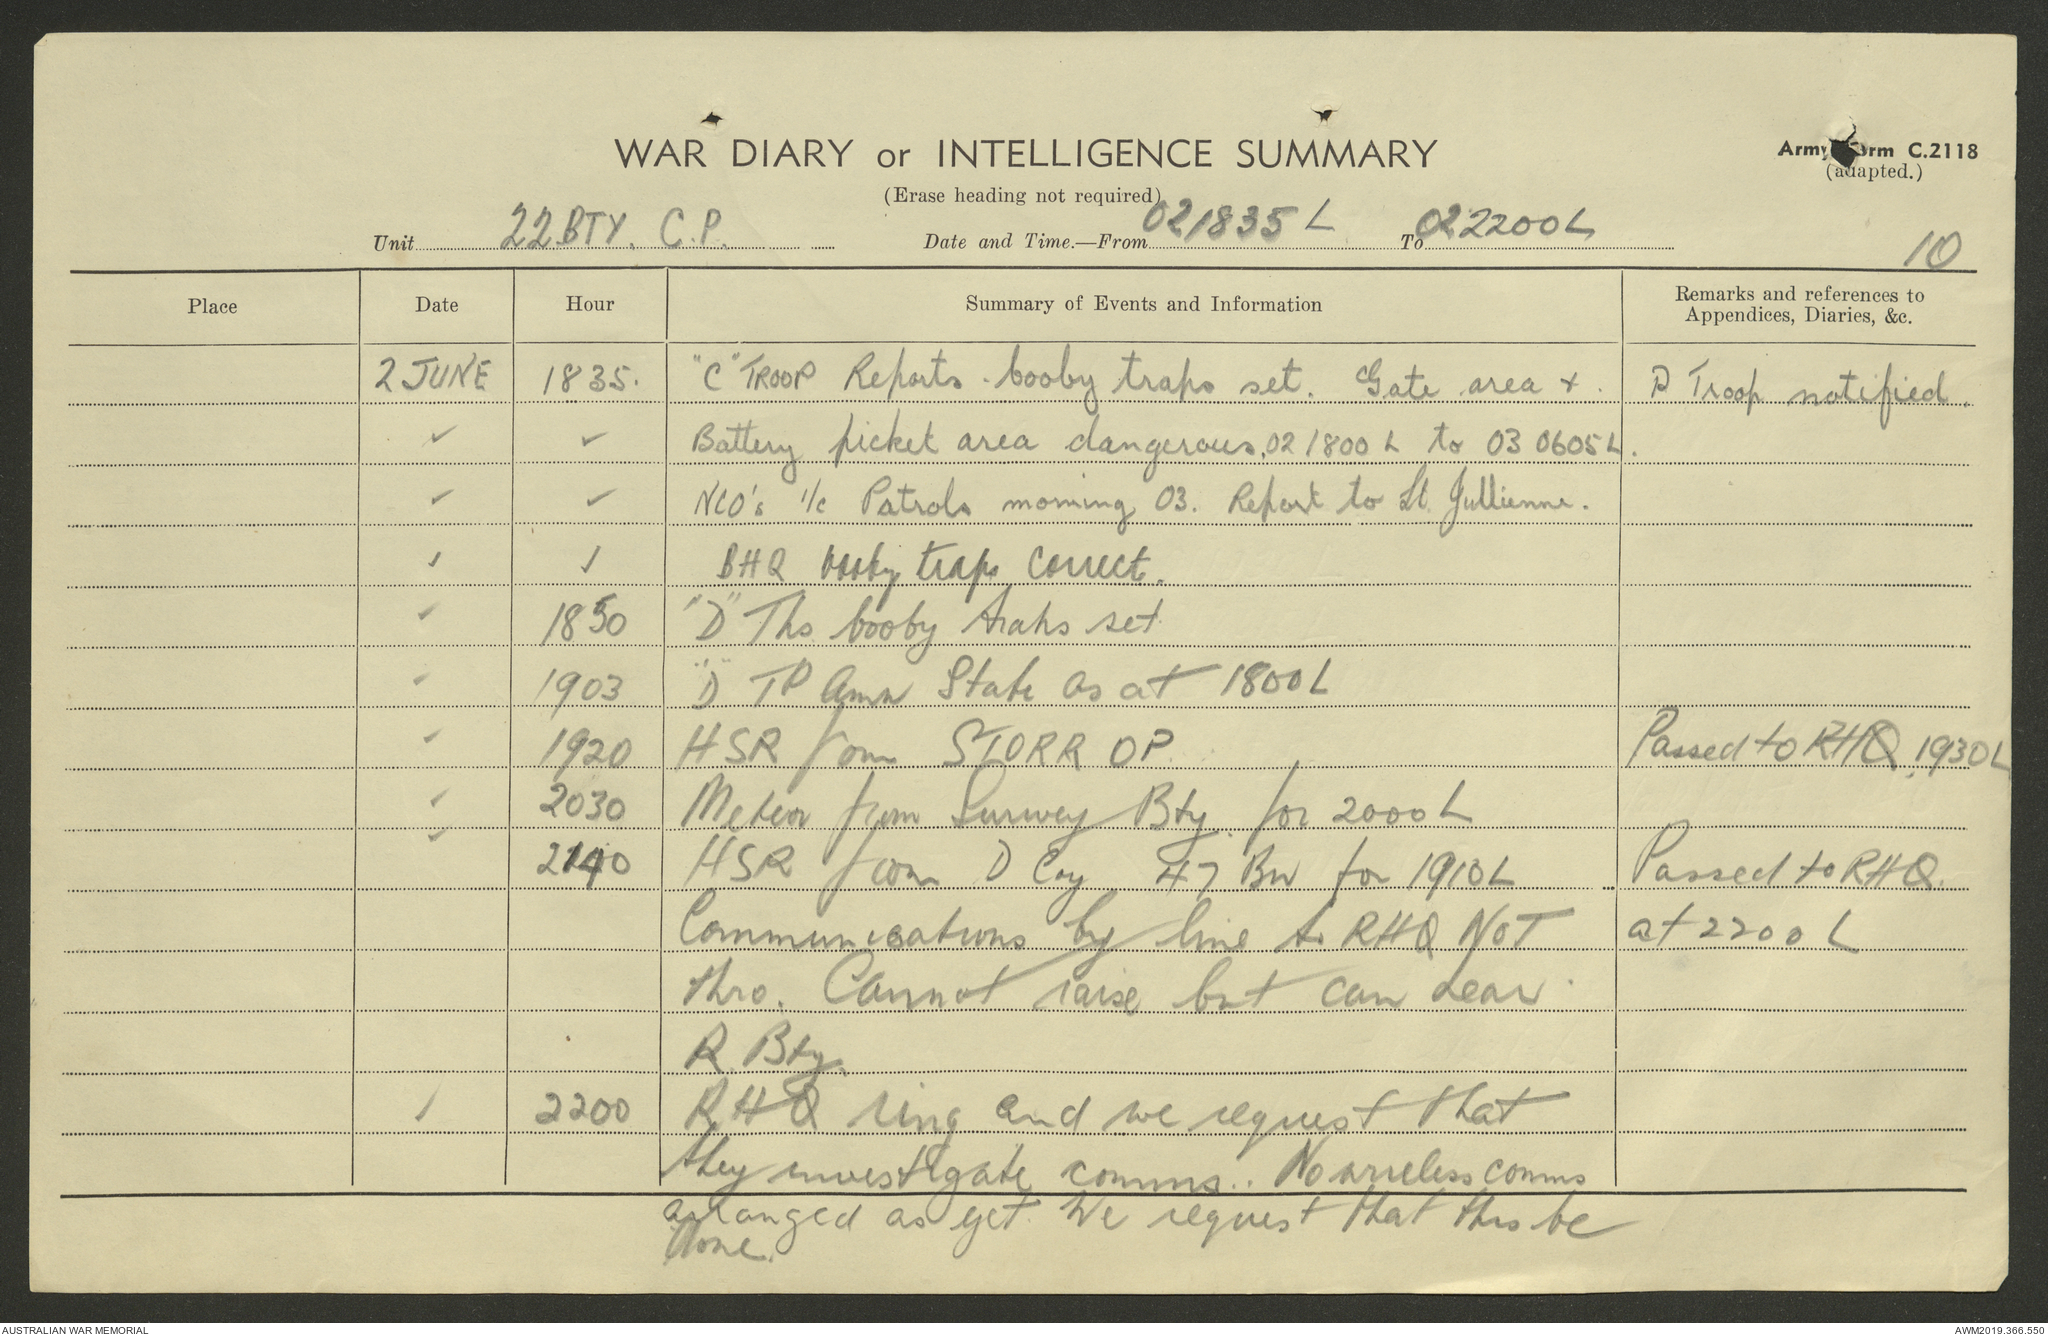 WAR DIARY or INTELLIGENCE SUMMARY
Army Form C.2118
(Erase heading not required)
(adapted.)
Unit 22 BTY. C.P. Date and Time.—From 021835L To 022200L
10
Place Date Hour Summary of Events and Information Remarks and references to Appendices, Diaries, &c.
2 JUNE 1835. "C" TROOP Reports booby traps set. Gate area + D Troop notified.
✓ ✓ Battery picket area dangerous, 02 1800 L to 03 0605 L.
✓ ✓ NCO's i/c Patrols morning 03. Report to Lt. Jullienne.
✓ ✓ BHQ booby traps correct.
✓ 1850 "D" Tps booby traps set
✓ 1903 "D" TP Amn State as at 1800L
✓ 1920 HSR from STORR OP. Passed to RHQ 1930L
✓ 2030 Meteor from Survey Bty. for 2000L
✓ 2140 HSR from D Coy 47 Bn for 1910L Passed to RHQ.
Communications by line to RHQ NOT at 2200L
thro. Cannot raise but can hear
R. Bty.
✓ 2200 RHQ ring and we request that
they investigate comms.. No wireless comms
arranged as yet. We request that this be
done.
AUSTRALIAN WAR MEMORIAL
AWM2019.366.550